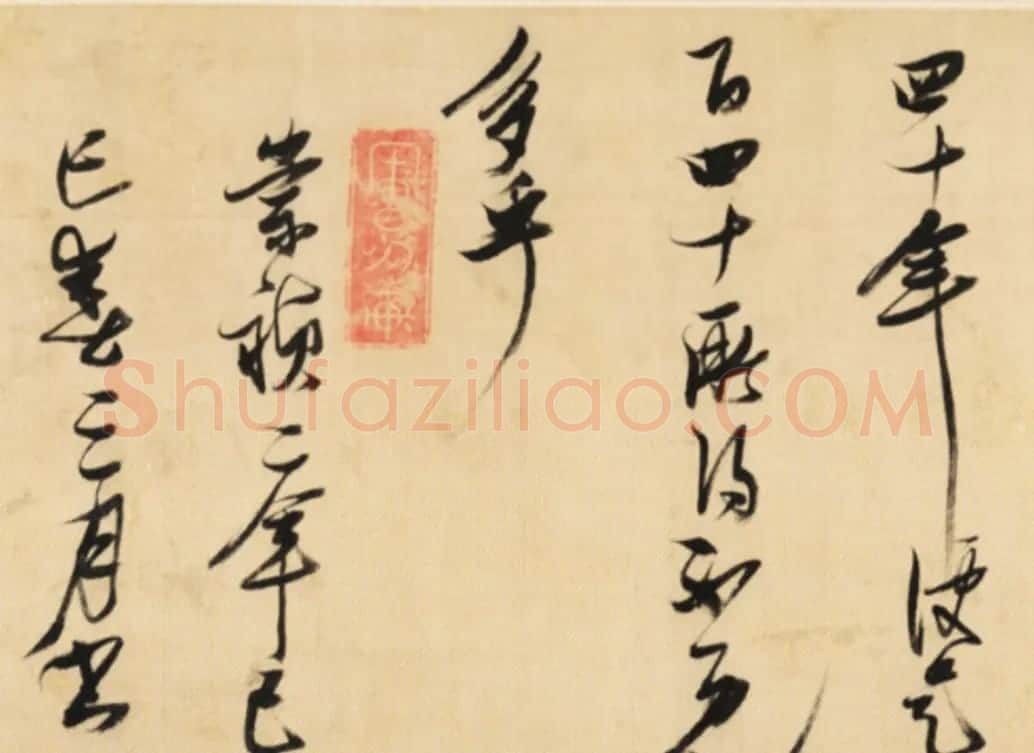 四十年便是
百四十所得不
多乎
崇禎二年己
巳春三月書
Shufaziliao.COM